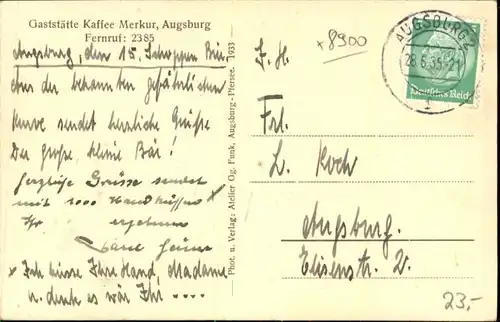 Gaststätte Kaffee Merkur, Augsburg
Fernruf: 2385
Augsburg, den 15. Schoppen Bier
Aus der bekannten gefährlichen
Kurve sendet herzliche Grüße
Der große, kleine Bär!
Herzliche Grüsse sendet
mit 1000 Handküssen x
Ihr ergebener
x Ich küsse Ihre Hand, Madame
u. denk es wär Ihr ....
Phot. u. Verlag: Atelier Og. Funk, Augsburg-Pfersee. 1933
x8900
AUGSBURG 2
28.6.35-21
Deutsches Reich
Frl.
L. Koch
Augsburg.
Elisenstr.
23,-